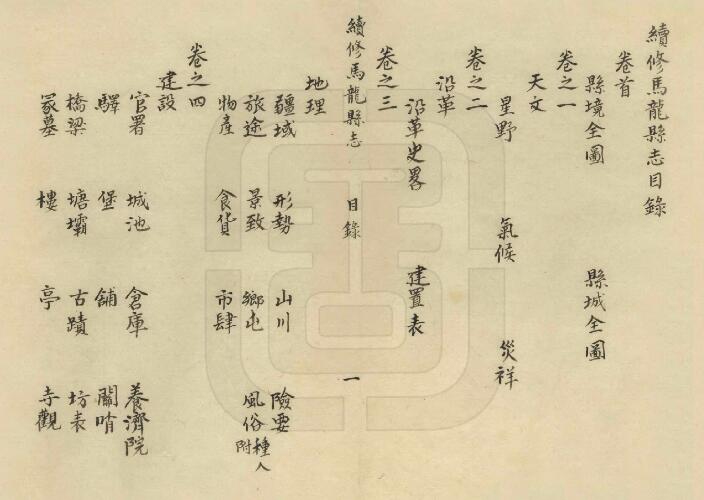 續修馬龍縣志目錄
卷首
縣境全圖 縣城全圖
卷之一
天文
星野 氣候 災祥
卷之二
沿革
沿革史畧 建置表
卷之三
續修馬龍縣志 目錄 一
地理
疆域 形勢 山川 險要
旅途 景致 鄉屯 風俗 種人附
物產 食貨 市肆
卷之四
建設
官署 城池 倉庫 養濟院
驛 堡 舖 關哨
橋梁 塘壩 古蹟 坊表
冢墓 樓 亭 寺觀